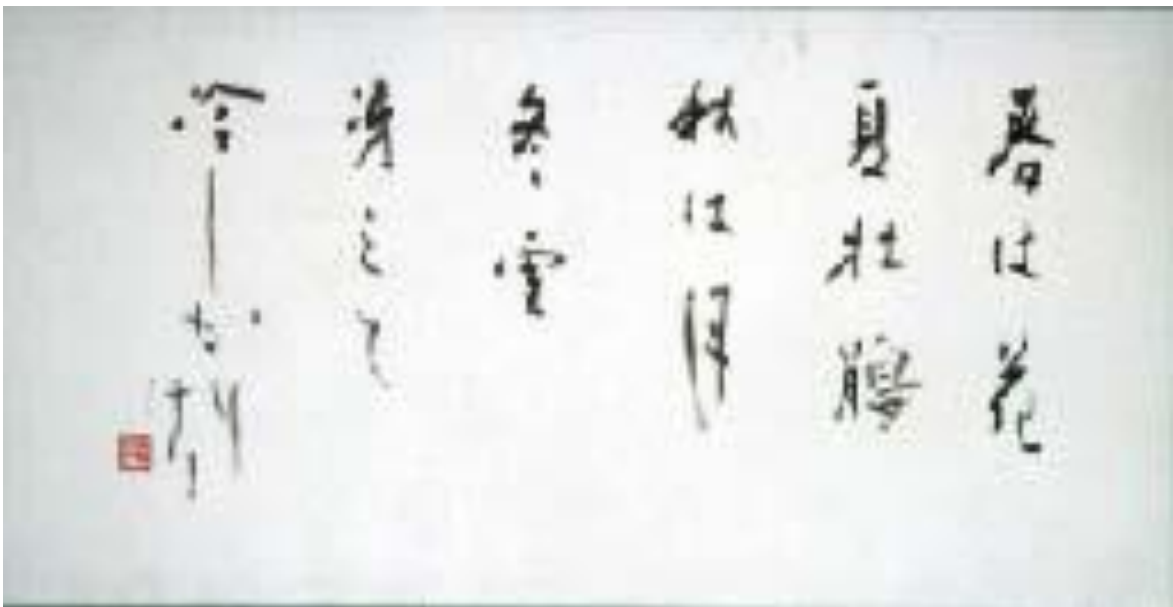 春は花
夏杜鵑
秋は月
冬雪
えて
冷しかりけり